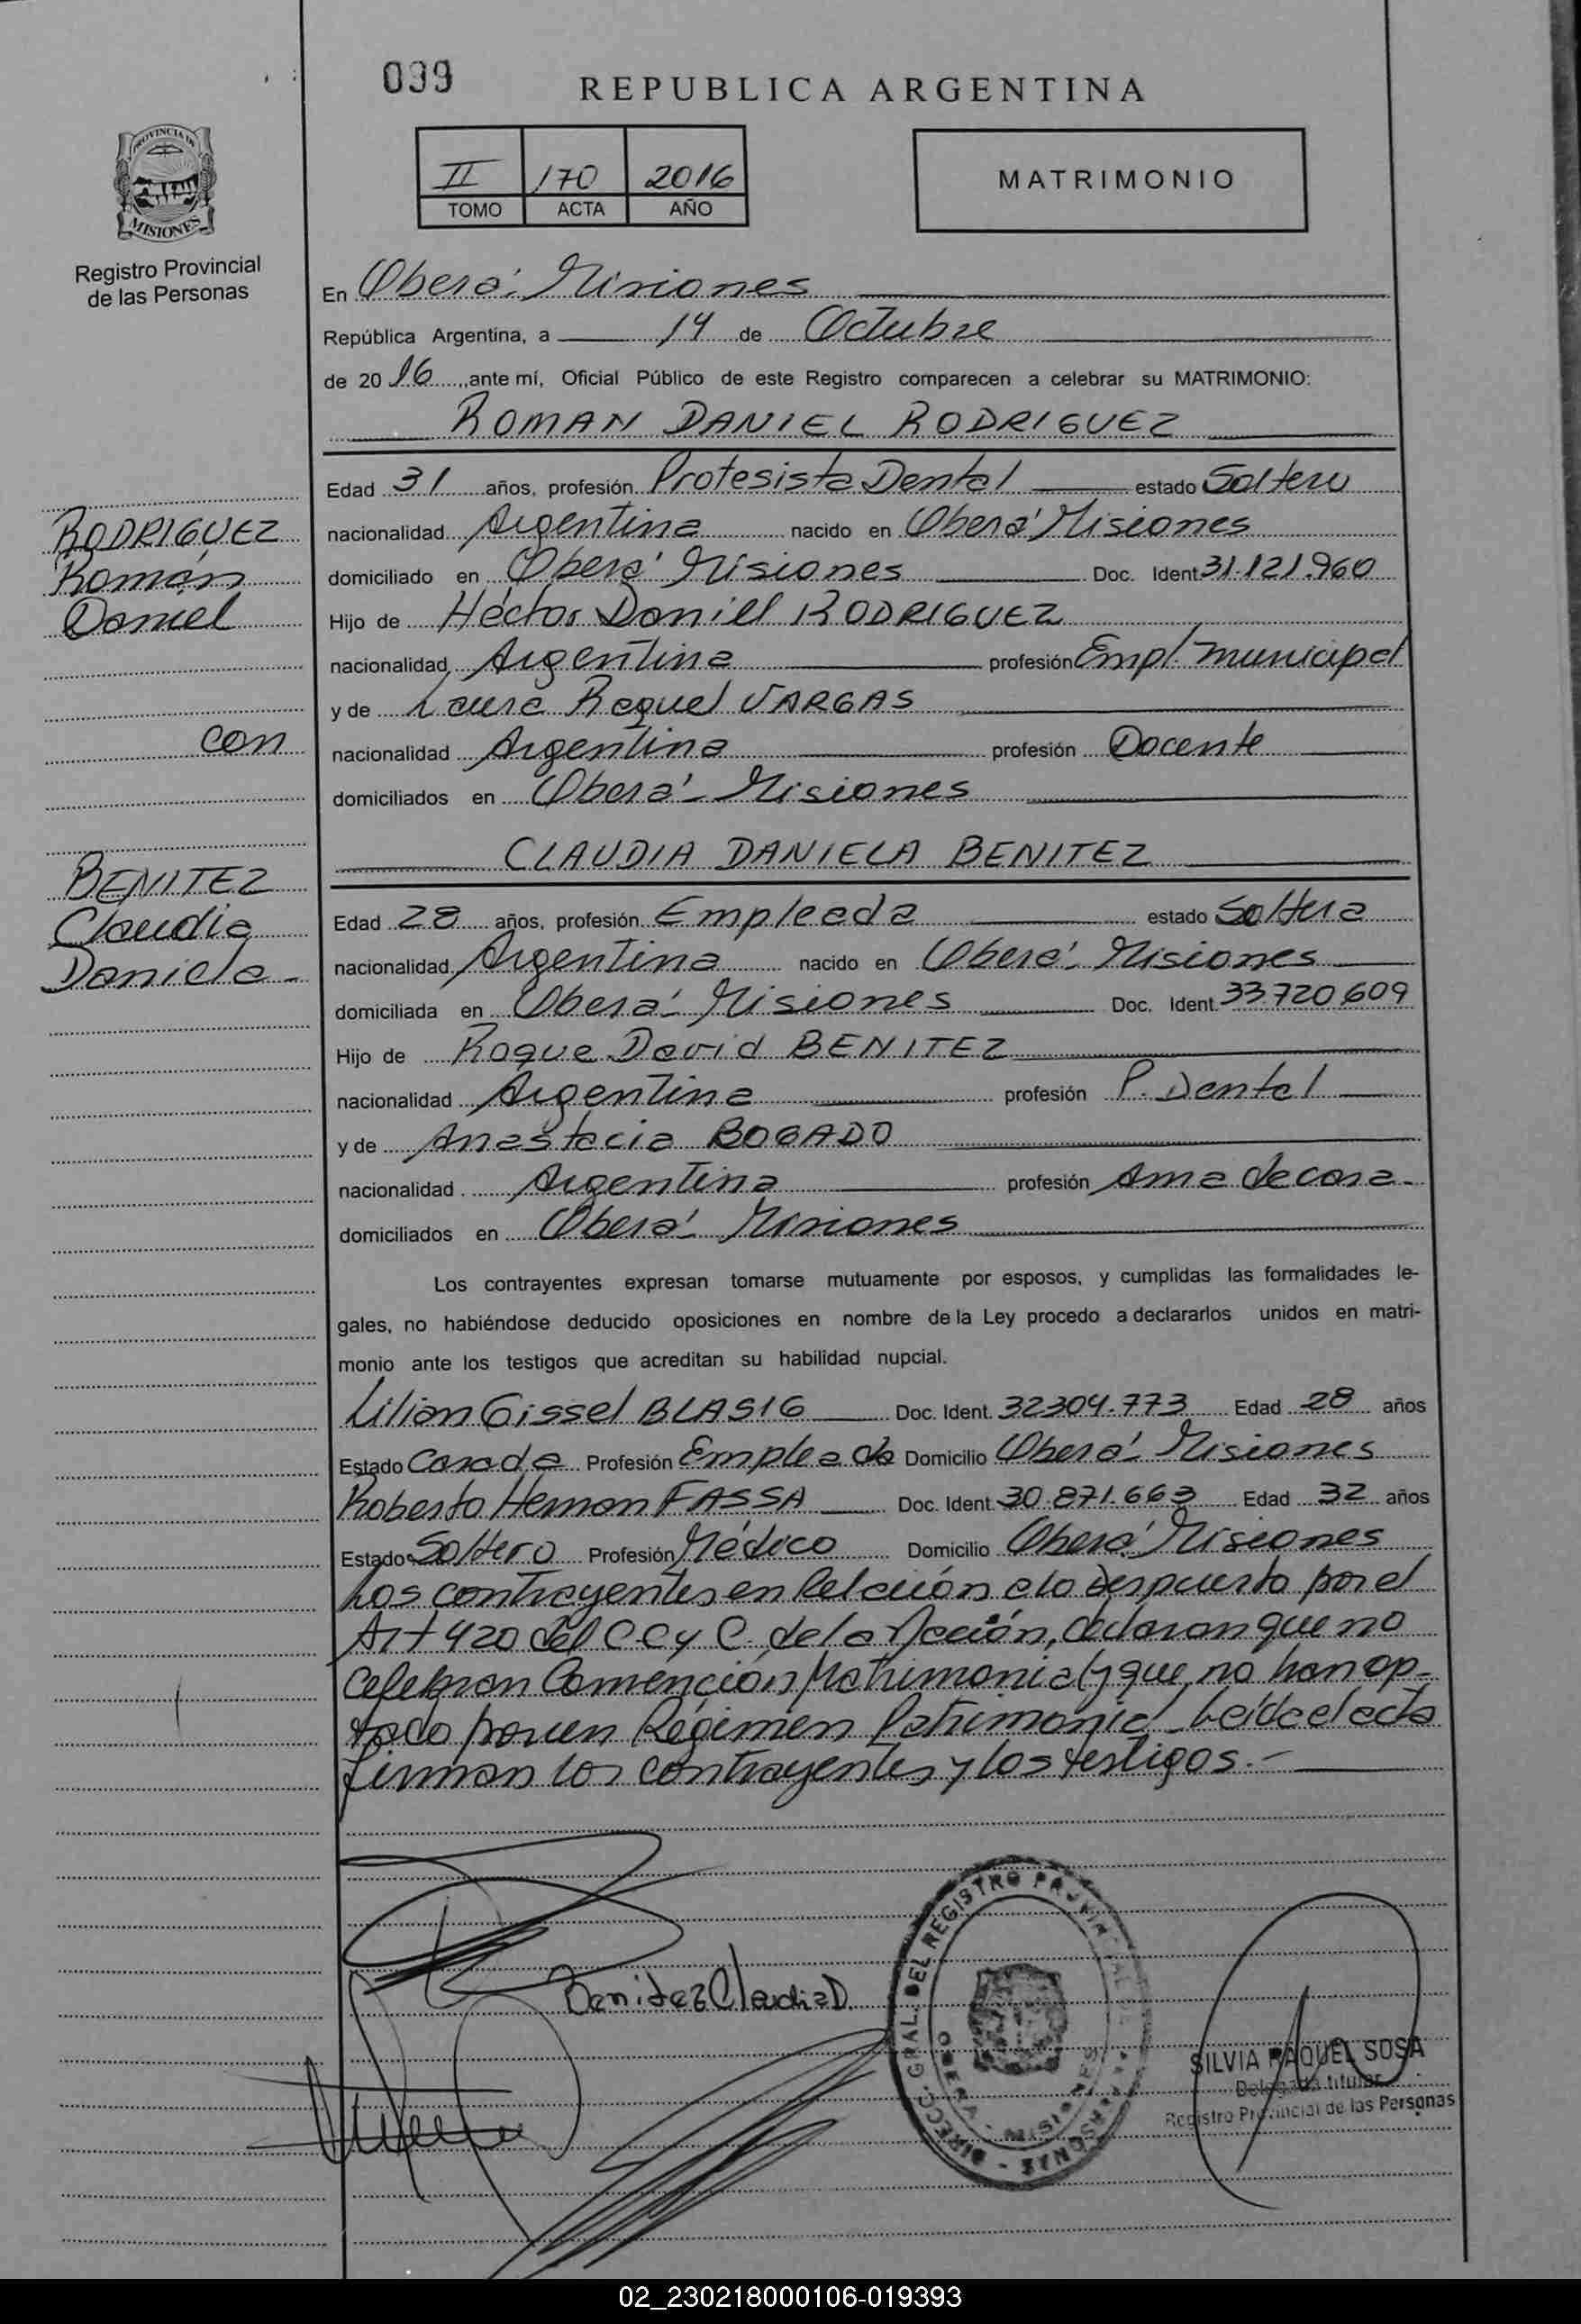 099
REPUBLICA ARGENTINA
PROVINCIA DE
MISIONES
Registro Provincial
de las Personas
II 170 2016
TOMO ACTA AÑO
MATRIMONIO
En Oberá - Misiones
República Argentina, a 14 de Octubre
de 2016, ante mí, Oficial Público de este Registro comparecen a celebrar su MATRIMONIO:
ROMAN DANIEL RODRIGUEZ
Edad 31 años, profesión Protesista Dental estado Soltero
nacionalidad Argentina nacido en Oberá Misiones
domiciliado en Oberá Misiones Doc. Ident. 31.121.960
Hijo de Héctor Daniel RODRIGUEZ
nacionalidad Argentina profesión Empl. Municipal
y de Laura Raquel VARGAS
nacionalidad Argentina profesión Docente
domiciliados en Oberá - Misiones
RODRIGUEZ
Román
Daniel
con
BENITEZ
Claudia
Daniela -
CLAUDIA DANIELA BENITEZ
Edad 28 años, profesión Empleada estado Soltera
nacionalidad Argentina nacido en Oberá - Misiones
domiciliada en Oberá - Misiones Doc. Ident. 33.720.609
Hijo de Roque David BENITEZ
nacionalidad Argentina profesión P. Dental
y de Anastacia BOGADO
nacionalidad Argentina profesión Ama de casa -
domiciliados en Oberá - Misiones
Los contrayentes expresan tomarse mutuamente por esposos, y cumplidas las formalidades le-
gales, no habiéndose deducido oposiciones en nombre de la Ley procedo a declararlos unidos en matri-
monio ante los testigos que acreditan su habilidad nupcial.
Lilian Gissel BLASIG Doc. Ident. 32304.773 Edad 28 años
Estado Casada Profesión Empleada Domicilio Oberá - Misiones
Roberto Hernan FASSA Doc. Ident. 30.871.663 Edad 32 años
Estado Soltero Profesión Médico Domicilio Oberá Misiones
Los contrayentes en Relación a lo Dispuesto por el
Art 420 del C.C y C. de la Nación, declaran que no
Celebran Convención Matrimonial y que no han op-
tado por un Régimen Patrimonial - Leída el acta
firman los contrayentes y los testigos. -
Benitez Claudia D.
DIRECC. GRAL. DEL REGISTRO PROVINCIAL PERSONAS
OBERA - MISIONES
SILVIA RAQUEL SOSA
Delegada titular
Registro Provincial de las Personas
02_230218000106-019393